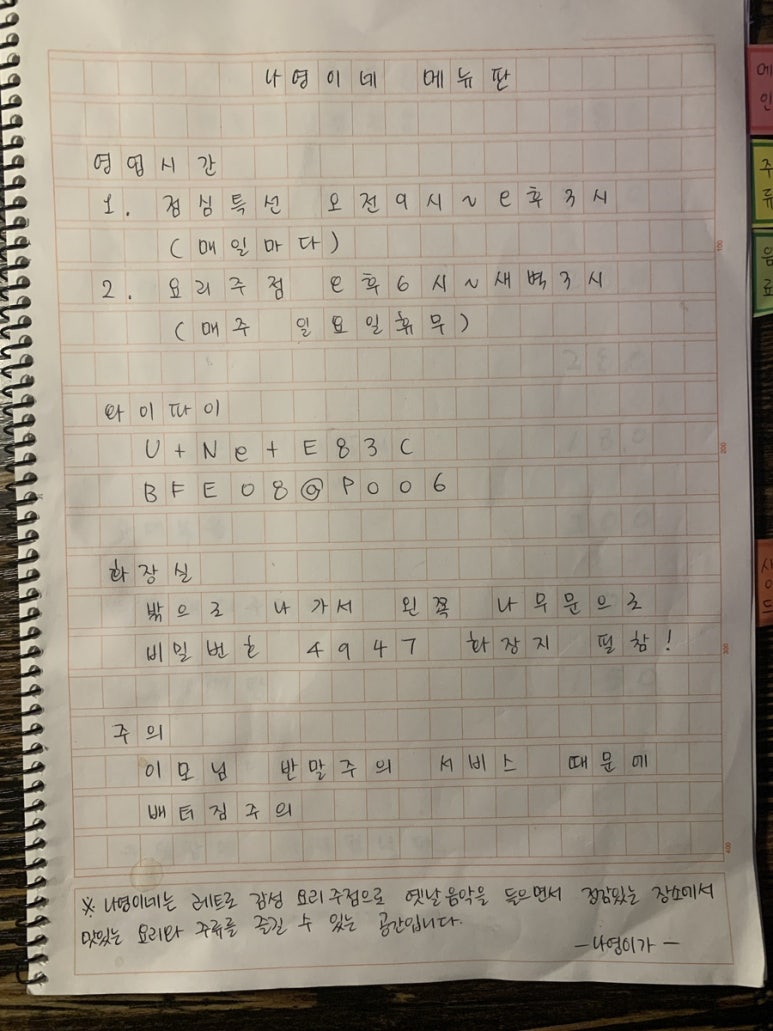 나영이네 메뉴판
영업시간
1. 점심특선 오전9시~오후3시
(매일마다)
2. 요리주점 오후6시~새벽3시
(매주 일요일휴무)
와이파이
U+Net E83C
BFE08@P006
화장실
밖으로 나가서 왼쪽 나무문으로
비밀번호 4947 화장지 필참!
주의
이모님 반말주의 서비스 때문에
배터짐주의
※ 나영이네는 레트로 감성 요리주점으로 옛날음악을 들으면서 정감있는 장소에서
맛있는 요리와 주류를 즐길 수 있는 공간입니다.
-나영이가-
메인
주류
음료
사이드